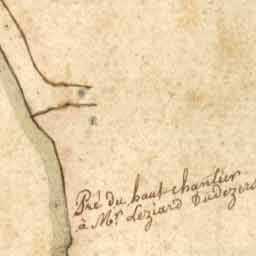 Pré du haut chantier
à Mr Leziard Dudezers